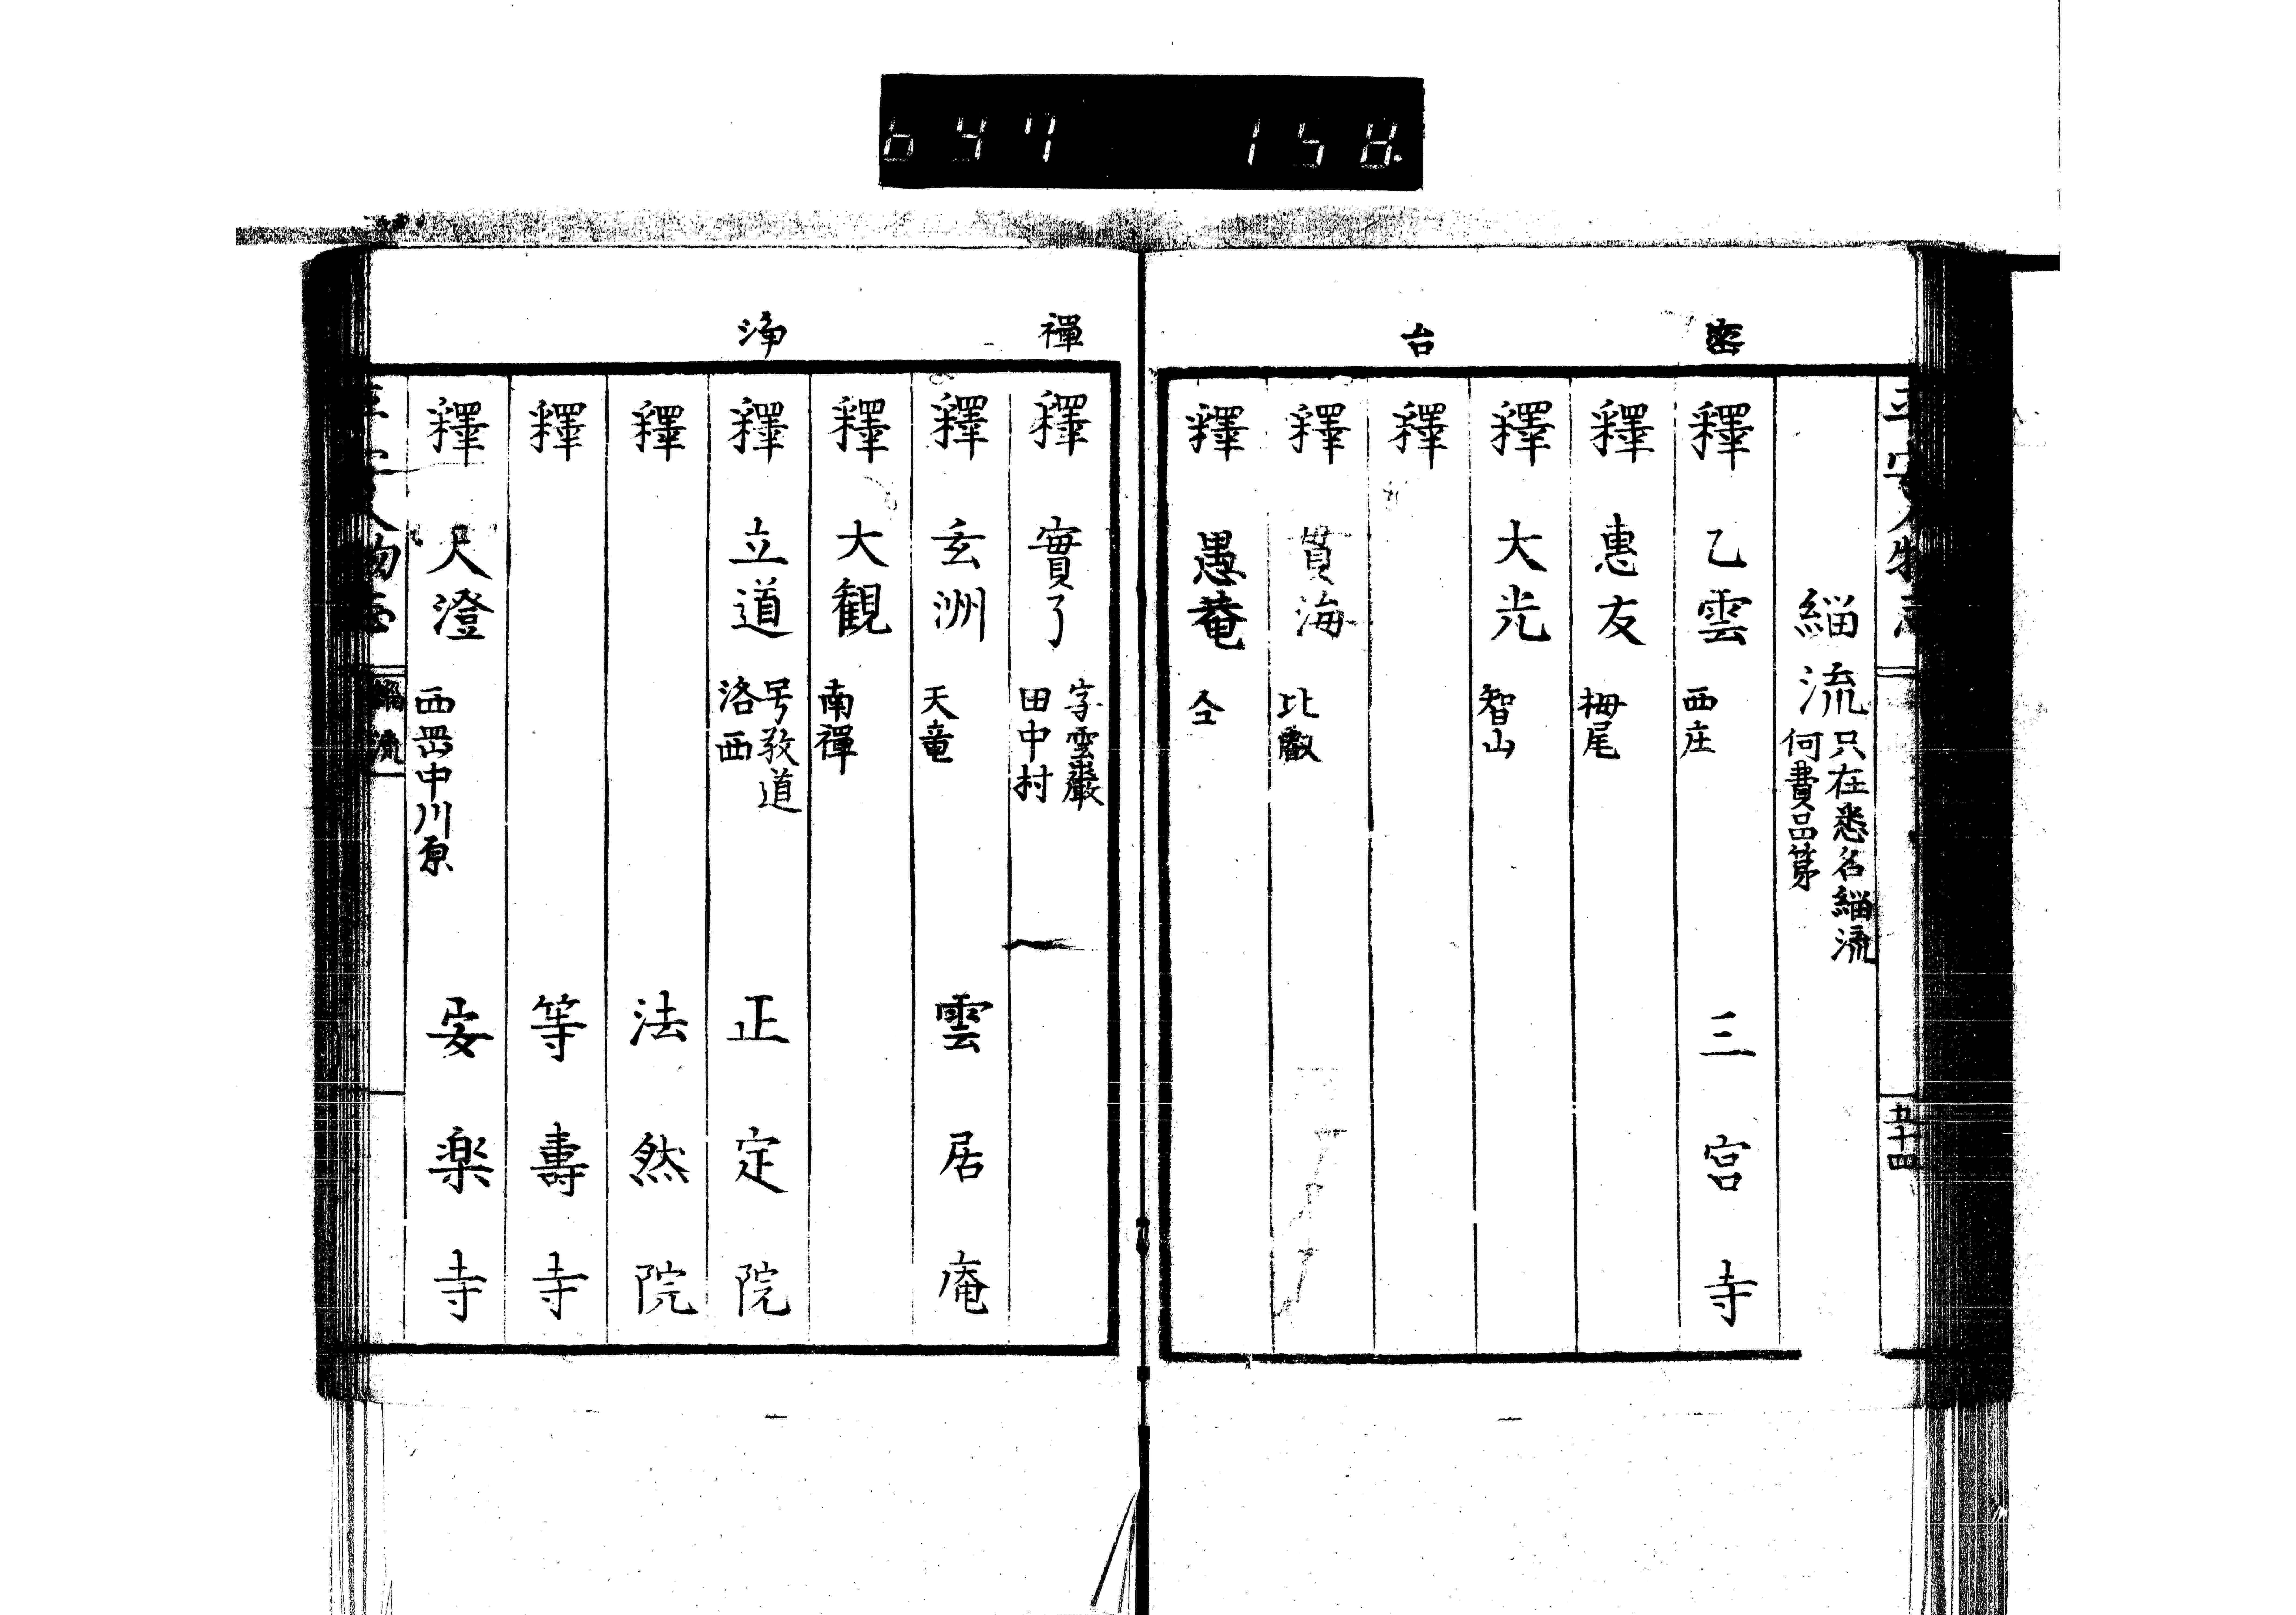 647 158
平安人物志
五十四
緇流 只在悉名緇流
何費品第
密
釋 乙雲 西庄 三宮寺
釋 惠友 栂尾
釋 大光 智山
台
釋
釋 貫海 比叡
釋 愚菴 仝
禪
釋 實了 字雲巖
田中村
釋 玄洲 天竜 雲居庵
釋 大観 南禪
浄
釋 立道 号敎道
洛西 正定院
釋 法然院
釋 等壽寺
釋 人澄 西岡中川原 安楽寺
人物志
緇流